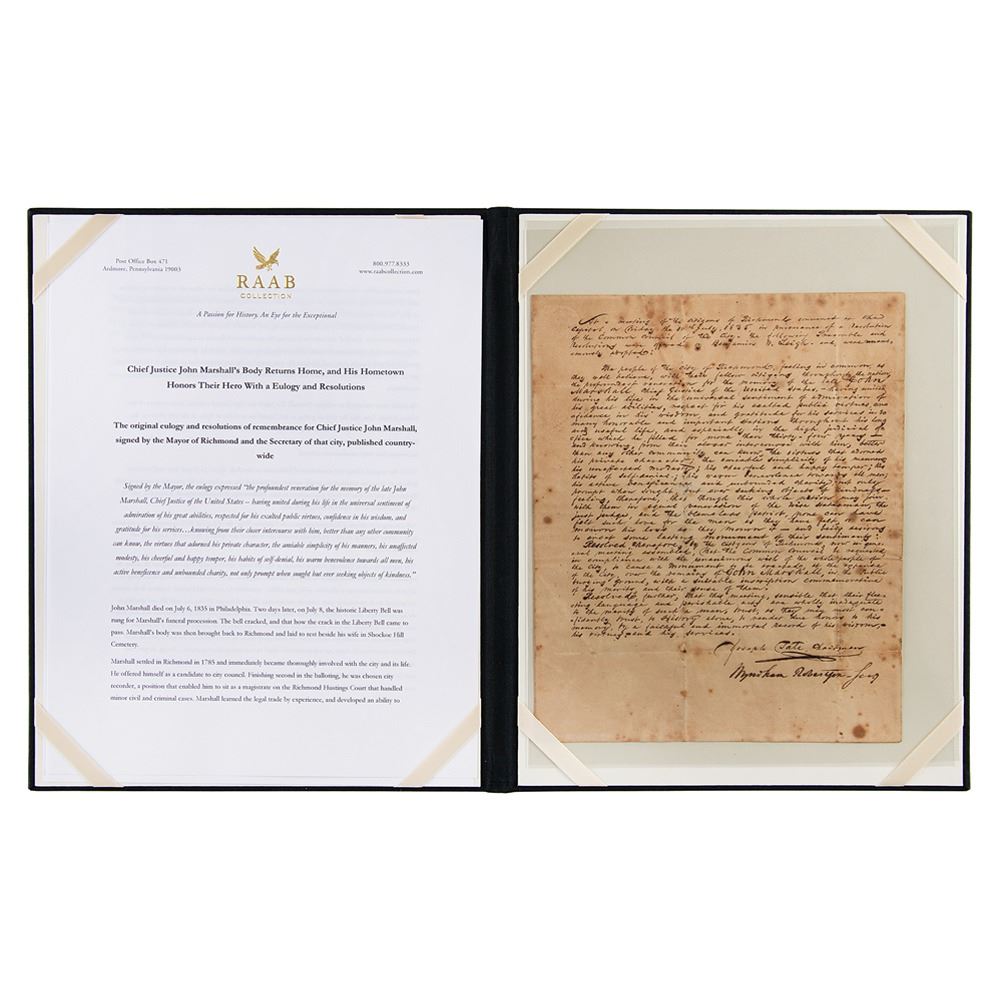 Post Office Box 471
Ardmore, Pennsylvania 19003
RAAB
COLLECTION
800.977.8333
www.raabcollection.com
A Passion for History. An Eye for the Exceptional
Chief Justice John Marshall's Body Returns Home, and His Hometown
Honors Their Hero With a Eulogy and Resolutions
The original eulogy and resolutions of remembrance for Chief Justice John Marshall,
signed by the Mayor of Richmond and the Secretary of that city, published country-
wide
Signed by the Mayor, the eulogy expressed "the profoundest veneration for the memory of the late John
Marshall, Chief Justice of the United States – having united during his life in the universal sentiment of
admiration of his great abilities, respected for his exalted public virtues, confidence in his wisdom, and
gratitude for his services…knowing from their closer intercourse with him, better than any other community
can know, the virtues that adorned his private character, the amiable simplicity of his manners, his unaffected
modesty, his cheerful and happy temper, his habits of self-denial, his warm benevolence towards all men, his
active beneficence and unbounded charity, not only prompt when sought but ever seeking objects of kindness."
John Marshall died on July 6, 1835 in Philadelphia. Two days later, on July 8, the historic Liberty Bell was
rung for Marshall's funeral procession. The bell cracked, and that how the crack in the Liberty Bell came to
pass. Marshall's body was then brought back to Richmond and laid to rest beside his wife in Shockoe Hill
Cemetery.
Marshall settled in Richmond in 1785 and immediately became thoroughly involved with the city and its life.
He offered himself as a candidate to city council. Finishing second in the balloting, he was chosen city
recorder, a position that enabled him to sit as a magistrate on the Richmond Hustings Court that handled
minor civil and criminal cases. Marshall learned the legal trade by experience, and developed an ability to
At a meeting of the citizens of Richmond, convened at the
Capitol, on Friday the July, 1835, in pursuance of a resolution
of the Common Council of the City, the following Preamble and
Resolutions were offered by Benjamin W. Leigh and were unani-
mously adopted:
The people of the City of Richmond, feeling in common, as
they well believe, with their fellow citizens throughout the nation,
the profoundest veneration for the memory of the late John
Marshall Chief Justice of the United States, – having united
during his life in the universal sentiment of admiration of
his great abilities, respect for his exalted public virtues, con-
fidence in his wisdom and gratitude for his services in so
many honorable and important stations throughout his long
and useful life, and especially in the high judicial of-
fice which he filled for more than thirty-four years –
and knowing, from their closer intercourse with him, better
than any other community can know the virtues that adorned
his private character, the amiable simplicity of his manners,
his unaffected modesty, his cheerful and happy temper, his
habits of selfdenial, his warm benevolence towards all men,
his active beneficence and unbounded charity, not only
prompt when sought, but ever seeking objects of kindness –
feeling, therefore, tho' though this whole nation may join
with them in equal veneration of the wise statesman, the
just judge and the blameless patriot, none can have
felt such love for the man as they have felt, or can
mourn his loss as they mourn it – and being desirous
to erect some lasting monument of their sentiments:
Resolved, therefore, by the citizens of Richmond, now in gene-
ral meeting assembled, that the Common Council be requested,
in compliance with the unanimous wish of the whole people of
the City, to cause a Monument to be erected, at the expense
of the City, over the remains of John Marshall, in the Public
burying ground, with a suitable inscription commemorative
of his merits and their sense of them.
Resolved, further, That this meeting, sensible that their flee-
ting language and perishable acts are wholly inadequate
to the merits of such a man, trust, as they may most con-
fidently trust, to History alone, to render due honors to his
memory, by a faithful and immortal record of his wisdom,
his virtues and his services.
Joseph Tate Chairman
Wyndham Robertson – Secy